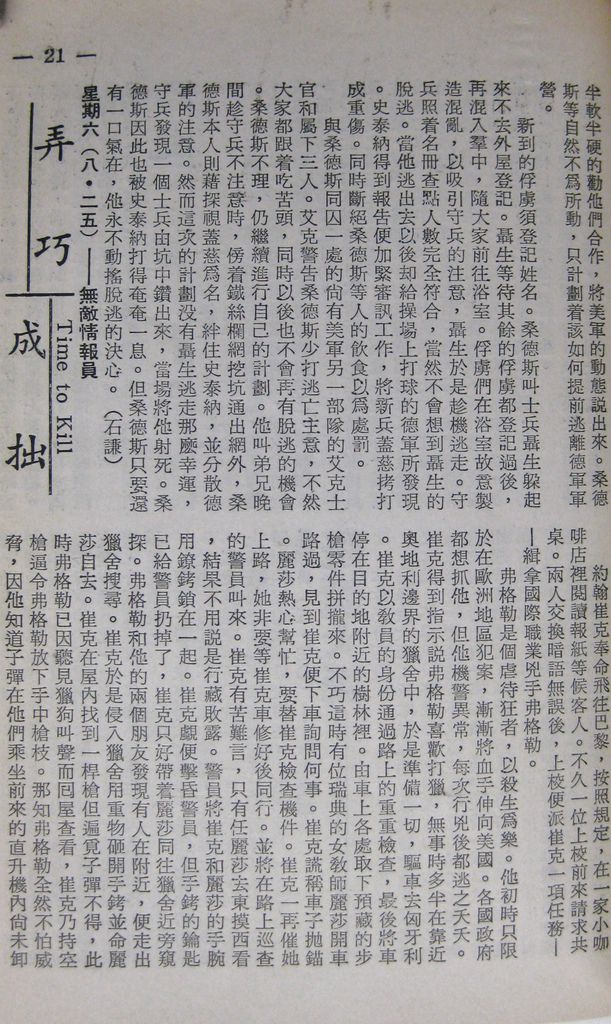 — 21 —
半軟半硬的勸他們合作，將美軍的動態說出來。桑德
斯等自然不爲所動，只計劃着該如何提前逃離德軍軍
營。
新到的俘虜須登記姓名。桑德斯叫士兵聶生躲起
來不去外屋登記。聶生等待其餘的俘虜都登記過後，
再混入羣中，隨大家前往浴室。俘虜們在浴室故意製
造混亂，以吸引守兵的注意，聶生於是趁機逃走。守
兵照着名冊查點人數完全符合，當然不會想到聶生的
脫逃。當他逃出去以後却給操場上打球的德軍所發現
。史泰納得到報告便加緊審訊工作，將新兵蓋慈拷打
成重傷。同時斷絕桑德斯等人的飲食以爲處罰。
與桑德斯同囚一處的尙有美軍另一部隊的艾克士
官和屬下三人。艾克警告桑德斯少打逃亡主意，不然
大家都跟着吃苦頭，同時以後也不會再有脫逃的機會
。桑德斯不理，仍繼續進行自己的計劃。他叫弟兄晚
間趁守兵不注意時，傍着鐵絲欄網挖坑通出網外，桑
德斯本人則藉探視蓋慈爲名，絆住史泰納，並分散德
軍的注意。然而這次的計劃没有聶生逃走那麼幸運，
守兵發現一個士兵由坑中鑽出來，當場將他射死。桑
德斯因此也被史泰納打得奄奄一息。但桑德斯只要還
有一口氣在，他永不動搖脫逃的決心。（石謙）
星期六（八・二五）——無敵情報員
弄巧成拙
Time to Kill
約翰崔克奉命飛往巴黎，按照規定，在一家小咖
啡店裡閱讀報紙等候客人。不久一位上校前來請求共
桌。兩人交換暗語無誤後，上校便派崔克一項任務—
—緝拿國際職業兇手弗格勒。
弗格勒是個虐待狂者，以殺生爲樂。他初時只限
於在歐洲地區犯案，漸漸將血手伸向美國。各國政府
都想抓他，但他機警異常，每次行兇後都逃之夭夭。
崔克得到指示說弗格勒喜歡打獵，無事時多半在靠近
奧地利邊界的獵舍中，於是準備一切，驅車去匈牙利
。崔克以敎員的身份通過路上的重重檢查，最後將車
停在目的地附近的樹林裡。由車上各處取下預藏的步
槍零件拼攏來。不巧這時有位瑞典的女敎師麗莎開車
路過，見到崔克便下車詢問何事。崔克謊稱車子拋錨
。麗莎熱心幫忙，要替崔克檢查機件。崔克一再催她
上路，她非要等崔克車修好後同行。並將在路上巡查
的警員叫來。崔克有苦難言，只有任麗莎去東摸西看
，結果不用說是行藏敗露。警員將崔克和麗莎的手腕
用鐐拷鎖在一起。崔克覷便擊昏警員，但手銬的鑰匙
已給警員扔掉了，崔克只好帶着麗莎同往獵舍近旁窺
探。弗格勒和他的兩個朋友發現有人在附近，便走出
獵舍搜尋。崔克於是侵入獵舍用重物砸開手銬並命麗
莎自去。崔克在屋內找到一桿槍但遍覓子彈不得，此
時弗格勒已因聽見獵狗叫聲而囘屋查看，崔克乃持空
槍逼令弗格勒放下手中槍枝。那知弗格勒全然不怕威
脅，因他知道子彈在他們乘坐前來的直升機內尙未卸